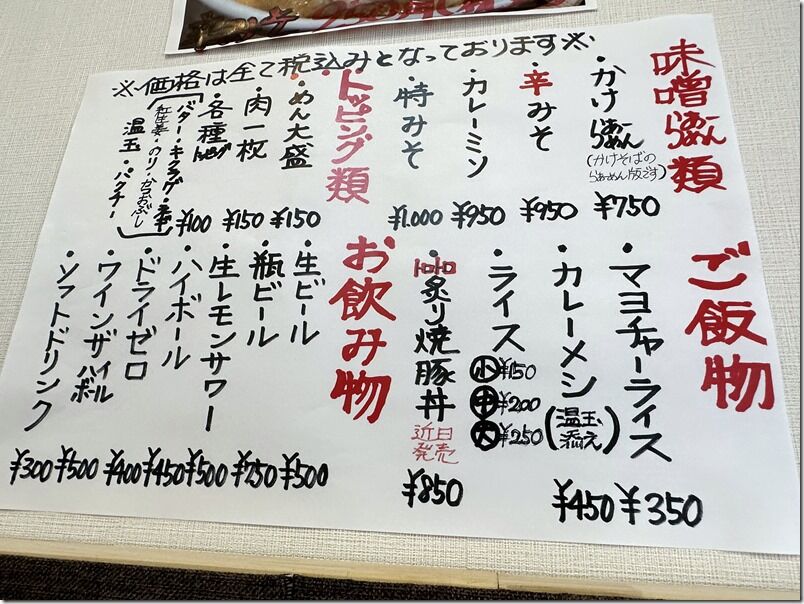 ※価格は全て税込みとなっております※
味噌らぁーめん類
・かけらぁーらぁーめん
(かけそばの
らぁーめん版です)
¥750
・辛みそ
¥950
・カレーミソ
¥950
・特みそ
¥1.000
トッピング類
・めん大盛
¥150
・肉一枚
¥150
・各種トッピング
¥100
バター・キクラゲ・
紅生姜・のり・かつおぶし
温玉・パクチー
ご飯物
・マヨチャーライス
¥350
・カレーメシ
(温玉添え)
¥450
・ライス
小¥150
中¥200
大¥250
・トロトロ炙り焼豚丼
近日発売
¥850
お飲み物
・生ビール
¥500
・瓶ビール
¥750
・生レモンサワー
¥500
・ハイボール
¥450
・ドライゼロ
¥400
・ワインザハイボール
¥500
・ソフトドリンク
¥300